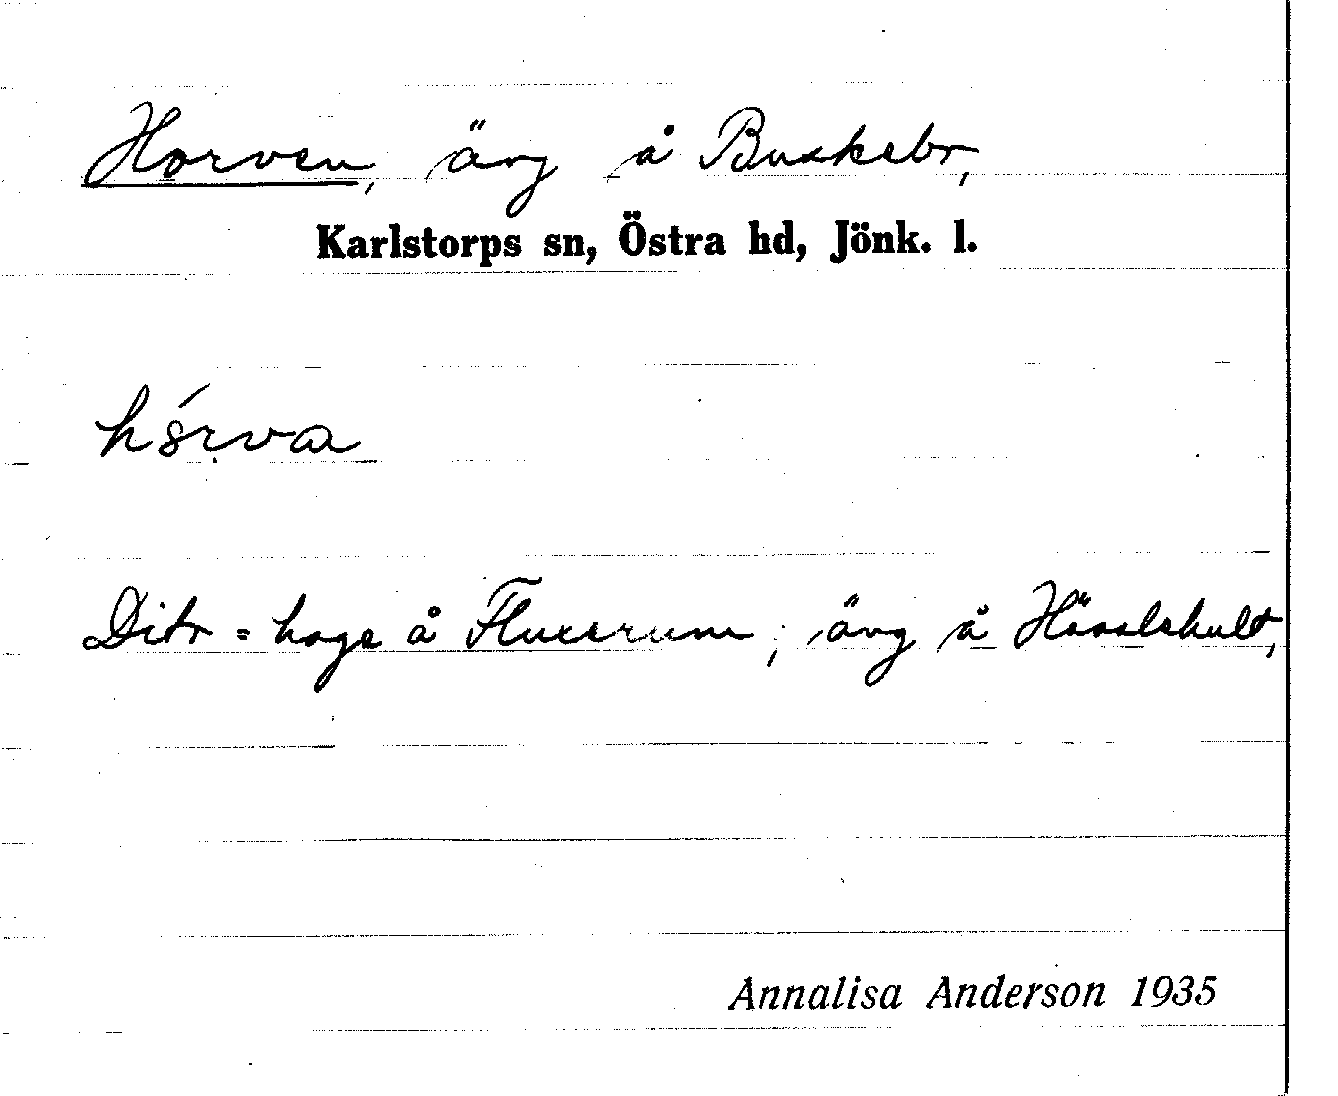 Horven, äng å Buskebo,
Karlstorps sn, Östra hd, Jönk. l.
hórva
Dito = hage å Fluxerum; äng å Hässlehult,
Annalisa Anderson 1935